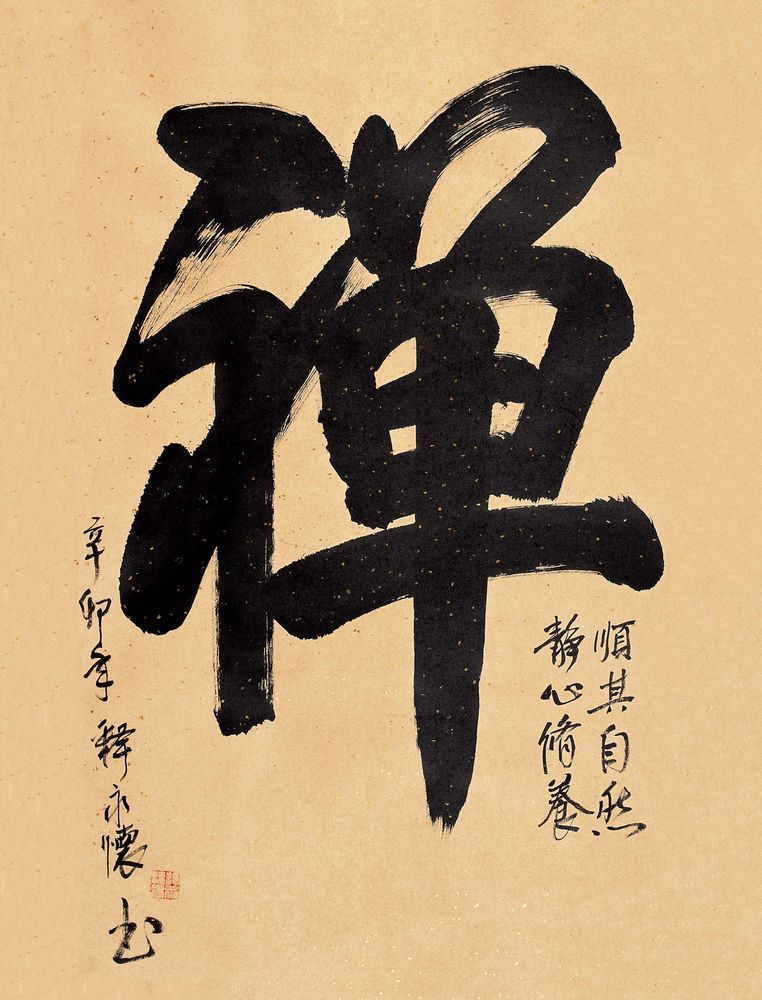 禅
順其自然
静心脩養
辛卯年 釋永懷 书